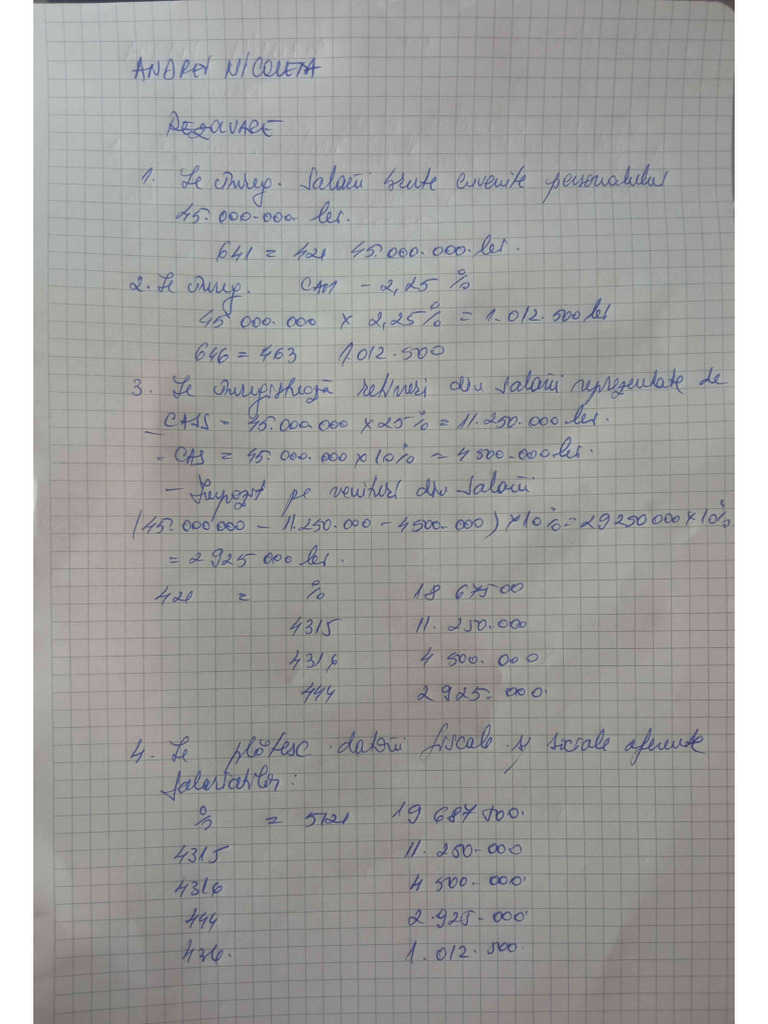 ANDREI NICOLETA
REZOLVARE
1. Se înreg. salarii brute cuvenite personalului
45.000.000 lei.
641 = 421 45.000.000 lei.
2. Se înreg. CAM - 2,25 %
45 000.000 x 2,25% = 1.012.500 lei
646 = 463 1.012.500
3. Se înregistrează rețineri din salarii reprezentate de
- CASS - 45.000.000 x 25% = 11.250.000 lei.
- CAS = 45.000.000 x 10% = 4 500.000 lei.
- Impozit pe venituri din salarii
(45.000000 - 11.250.000 - 4500.000) x 10% = 29250000 x 10%
= 2 925 000 lei.
421 = % 18 67500
4315 11.250.000
4316 4 500.000
444 2 925.000
4. Se plătesc datorii fiscale și sociale aferente
salariaților:
% = 5121 19 687 500.
4315 11.250.000
4316 4 500.000.
444 2.925.000
436. 1.012.500